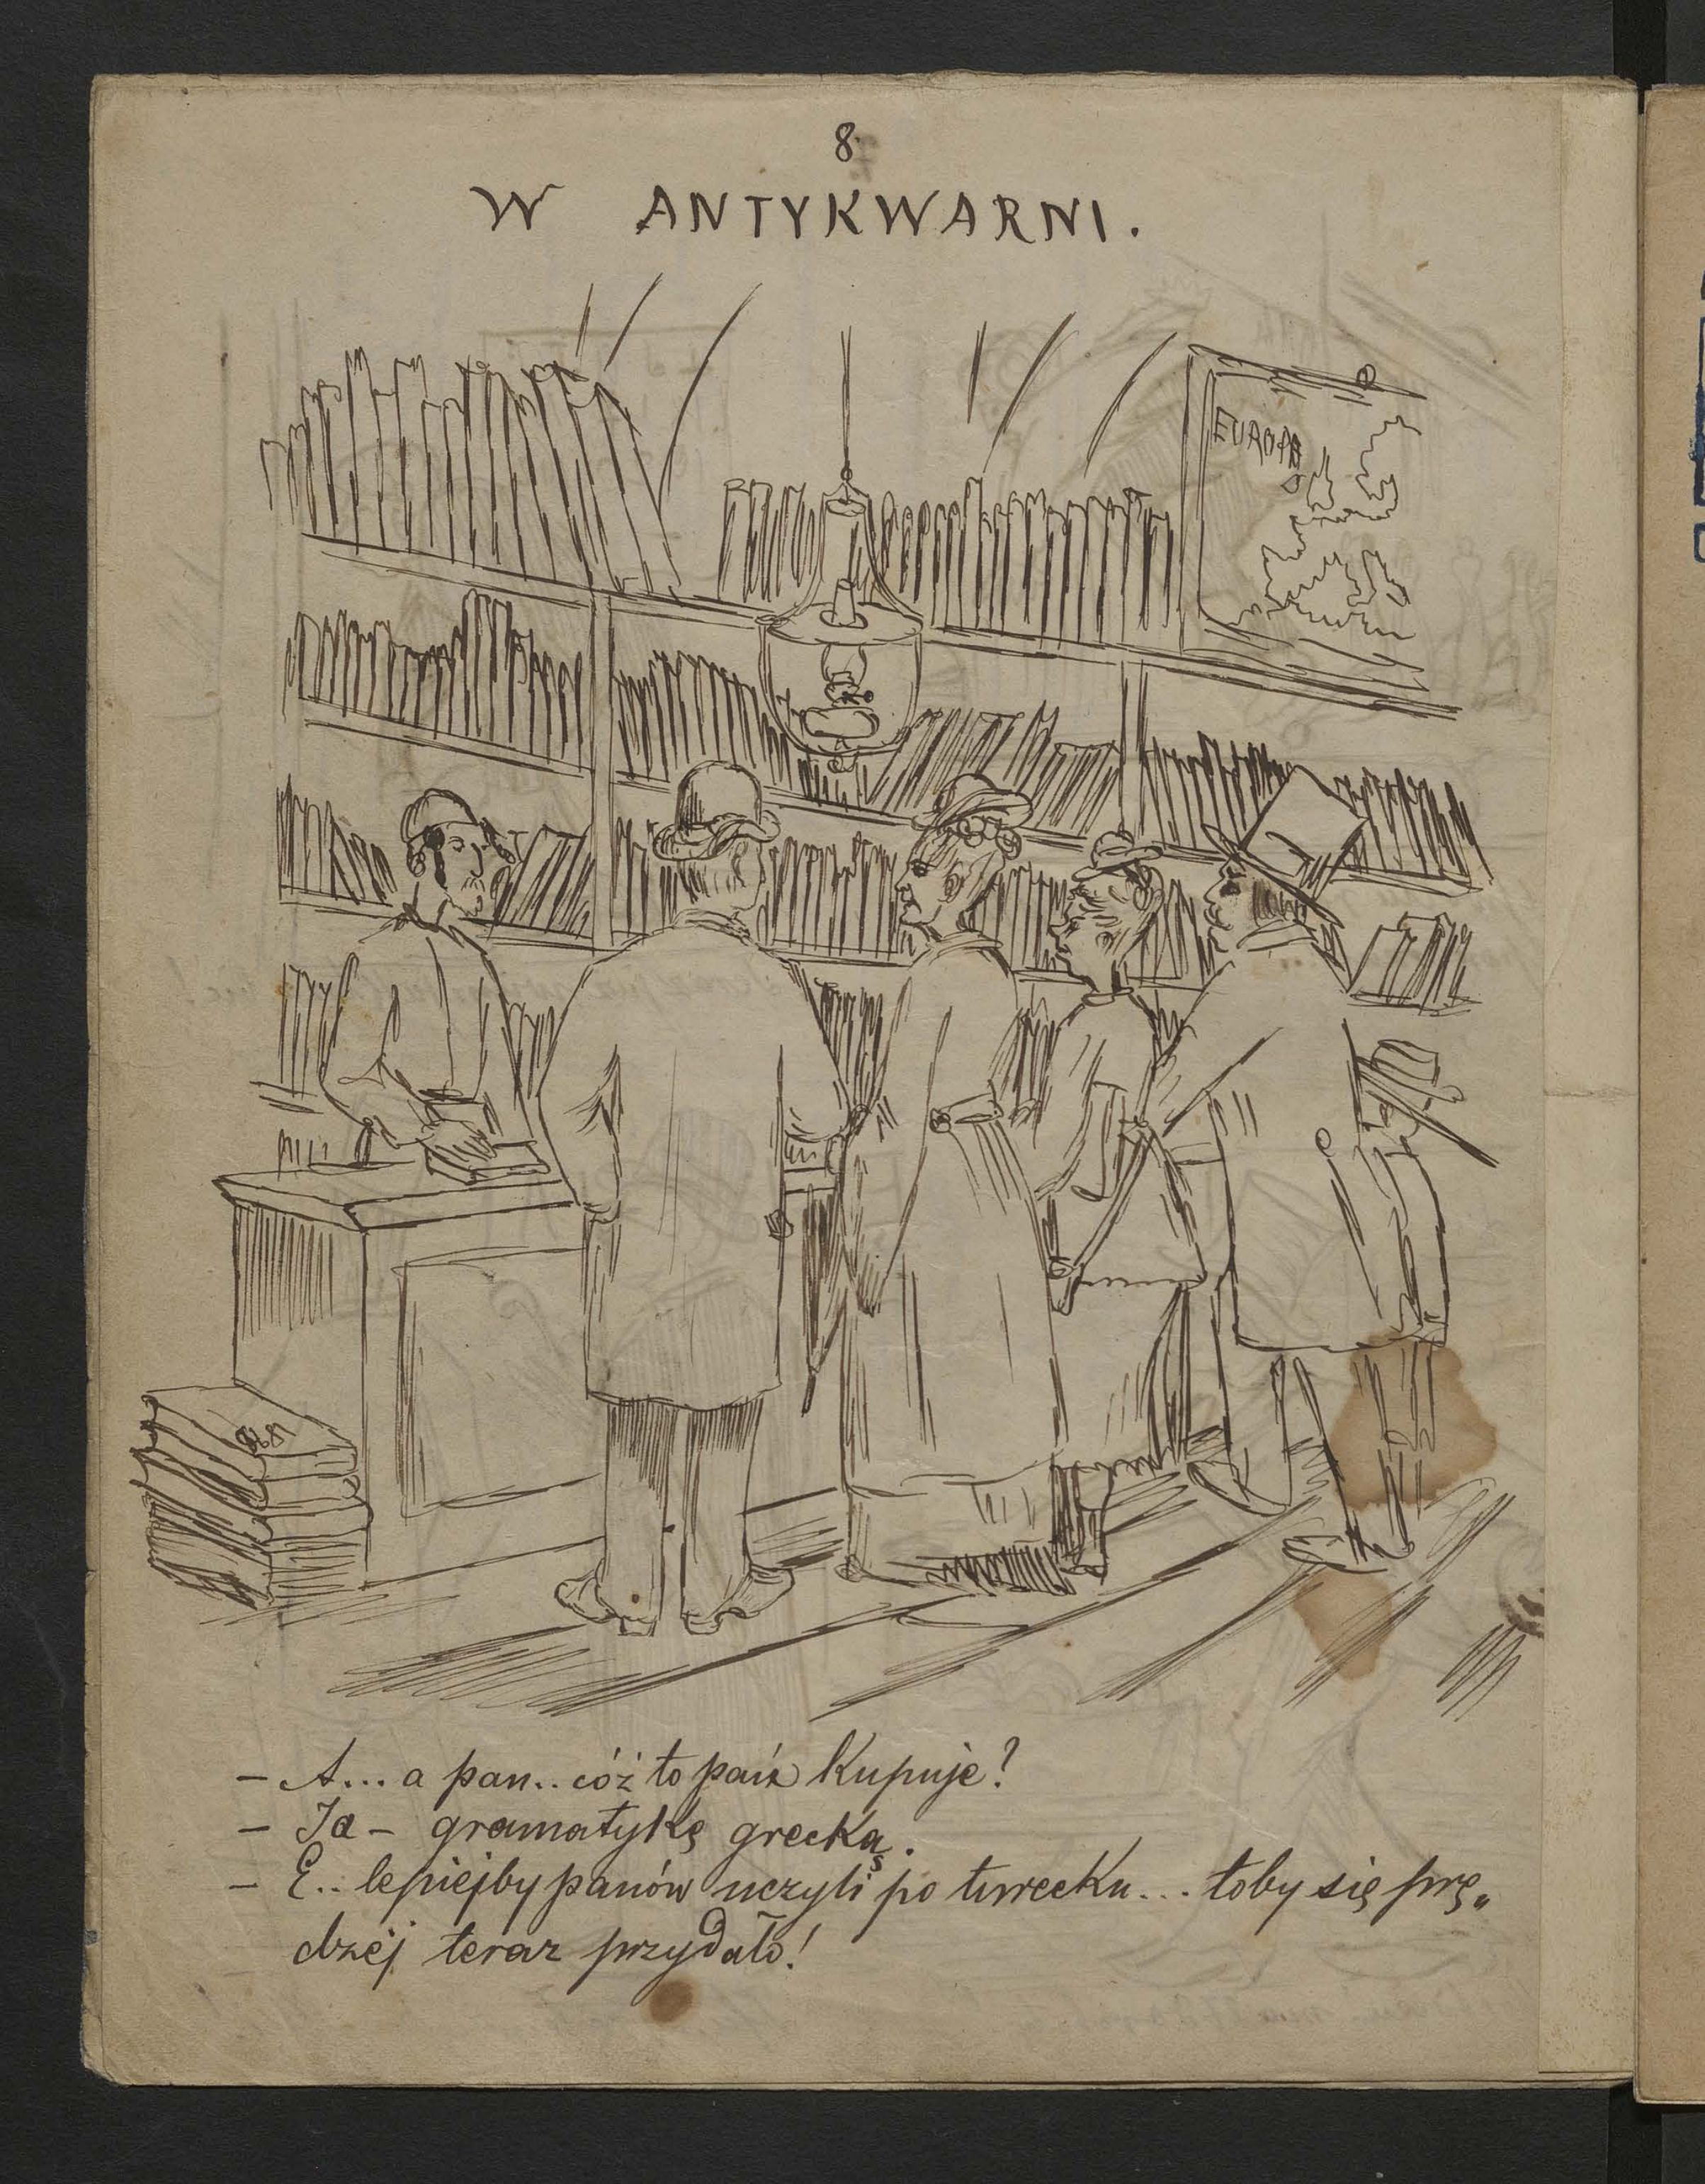 8.
W ANTYKWARNI.
EUROPA
– A... a pan.. cóż to pan kupuje?
– Ja – gramatykę grecką.
– E.. lepiejby panów uczyli po turecku... toby się prę„
dzej teraz przydało!